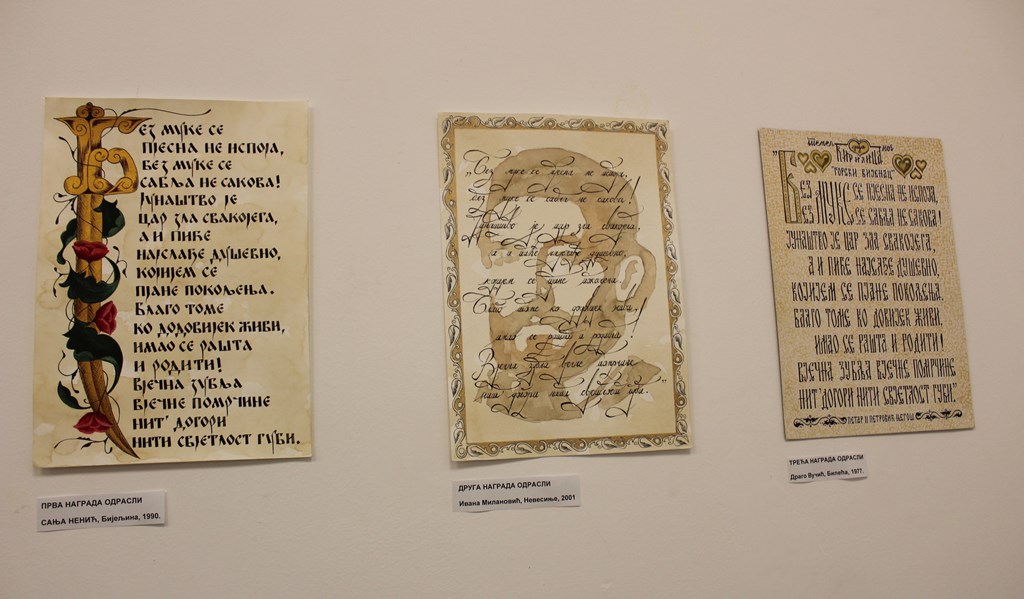 Без муке се
пјесна не испоја,
без муке се
сабља не сакова!
Јунаштво је
цар зла свакојега,
а и пиће
најслађе душевно,
којијем се
пјане покољења.
Благо томе
ко додовијек живи,
имао се рашта
и родити!
Вјечна зубља
вјечне помрчине
нит' догори
нити свјетлост губи.
ПРВА НАГРАДА ОДРАСЛИ
САЊА НЕНИЋ, Бијељина, 1990.
„Без муке се пјесна не испоја,
без муке се сабља не сакова!
Јунаштво је цар зла свакојега,
а и пиће најслађе душевно,
којијем се пјане покољења.
ко довијек живи,
имао се рашта и родити!
Вјечна зубља вјечне помрчине
ДРУГА НАГРАДА ОДРАСЛИ
Ивана Милановић, Невесиње, 2001
Ћирилица
"ГОРСКИ ВИЈЕНАЦ"
"БЕЗ МУКЕ СЕ ПЈЕСНА НЕ ИСПОЈА,
БЕЗ МУКЕ СЕ САБЉА НЕ САКОВА!
ЈУНАШТВО ЈЕ ЦАР ЗЛА СВАКОЈЕГА,
А И ПИЋЕ НАЈСЛАЂЕ ДУШЕВНО,
КОЈИЈЕМ СЕ ПЈАНЕ ПОКОЉЕЊА.
БЛАГО ТОМЕ КО ДОВИЈЕК ЖИВИ,
ИМАО СЕ РАШТА И РОДИТИ!
ВЈЕЧНА ЗУБЉА ВЈЕЧНЕ ПОМРЧИНЕ
НИТ' ДОГОРИ НИТИ СВЈЕТЛОСТ ГУБИ."
ПЕТАР II ПЕТРОВИЋ ЊЕГОШ
ТРЕЋА НАГРАДА ОДРАСЛИ
Драго Вучић, Билећа, 1977.